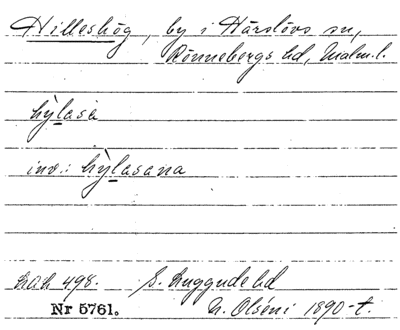 Hilleshög, by i Härslövs sn,
Rönnebergs hd, Malm. l.
hỳlasa
inv.: hỳlasana
S. Luggude hd
Nr 5761.
N. Olséni 1890-t.